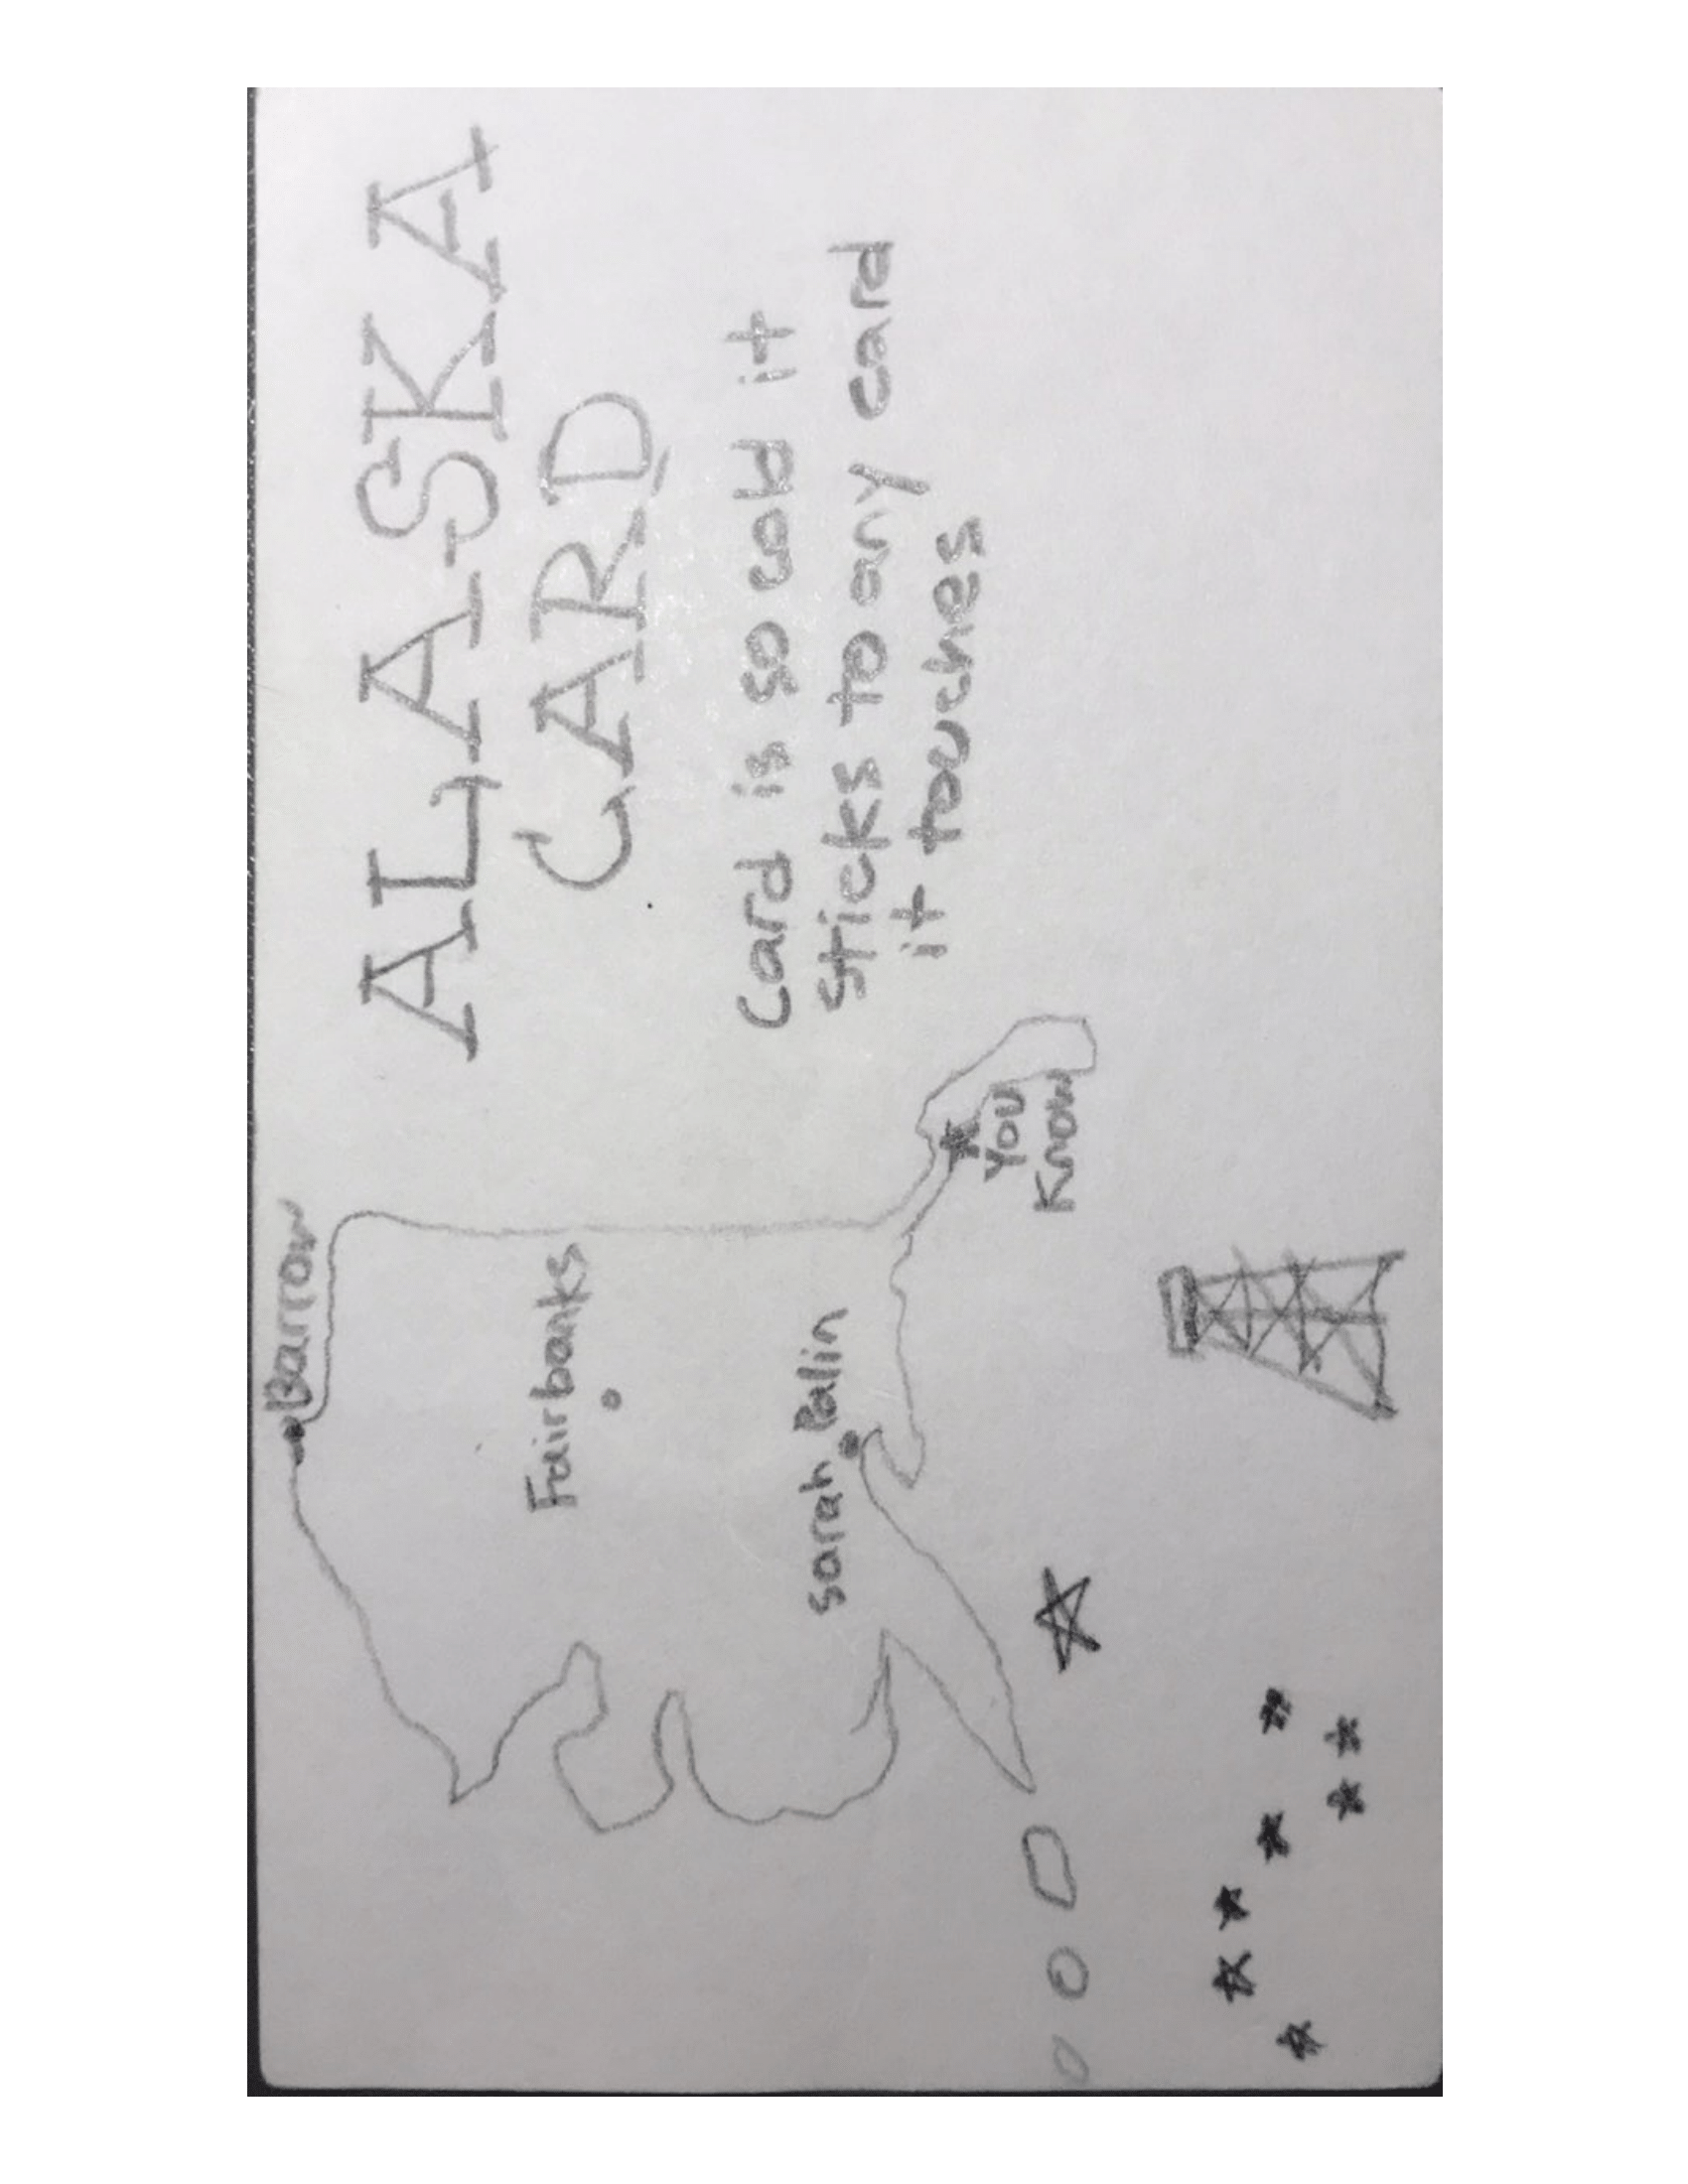 ALASKA
CARD
Card is so cold it
sticks to any card
it touches
Barrow
Fairbanks
Sarah Palin
You
Know